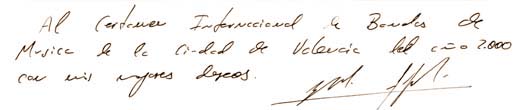 Al Certamen Internacional de Bandas de
Musica de la Ciudad de Valencia del año 2.000
con mis mejores deseos.